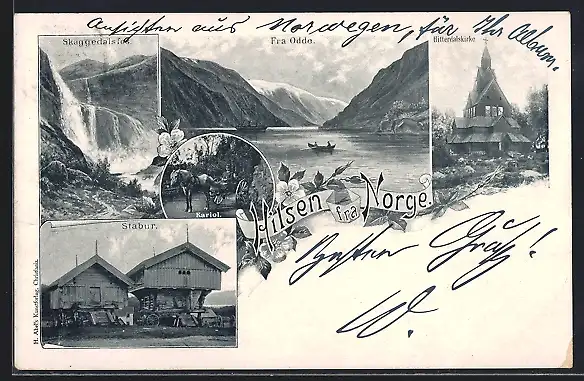 Ansichten aus Norwegen, für Ihr Album.
Skaggedalsfos.
Fra Odde.
Hitterdalskirke
Kariol.
Hilsen fra Norge.
Stabur.
Besten Gruß!
W.
H. Abel's Kunstforlag, Christiania.